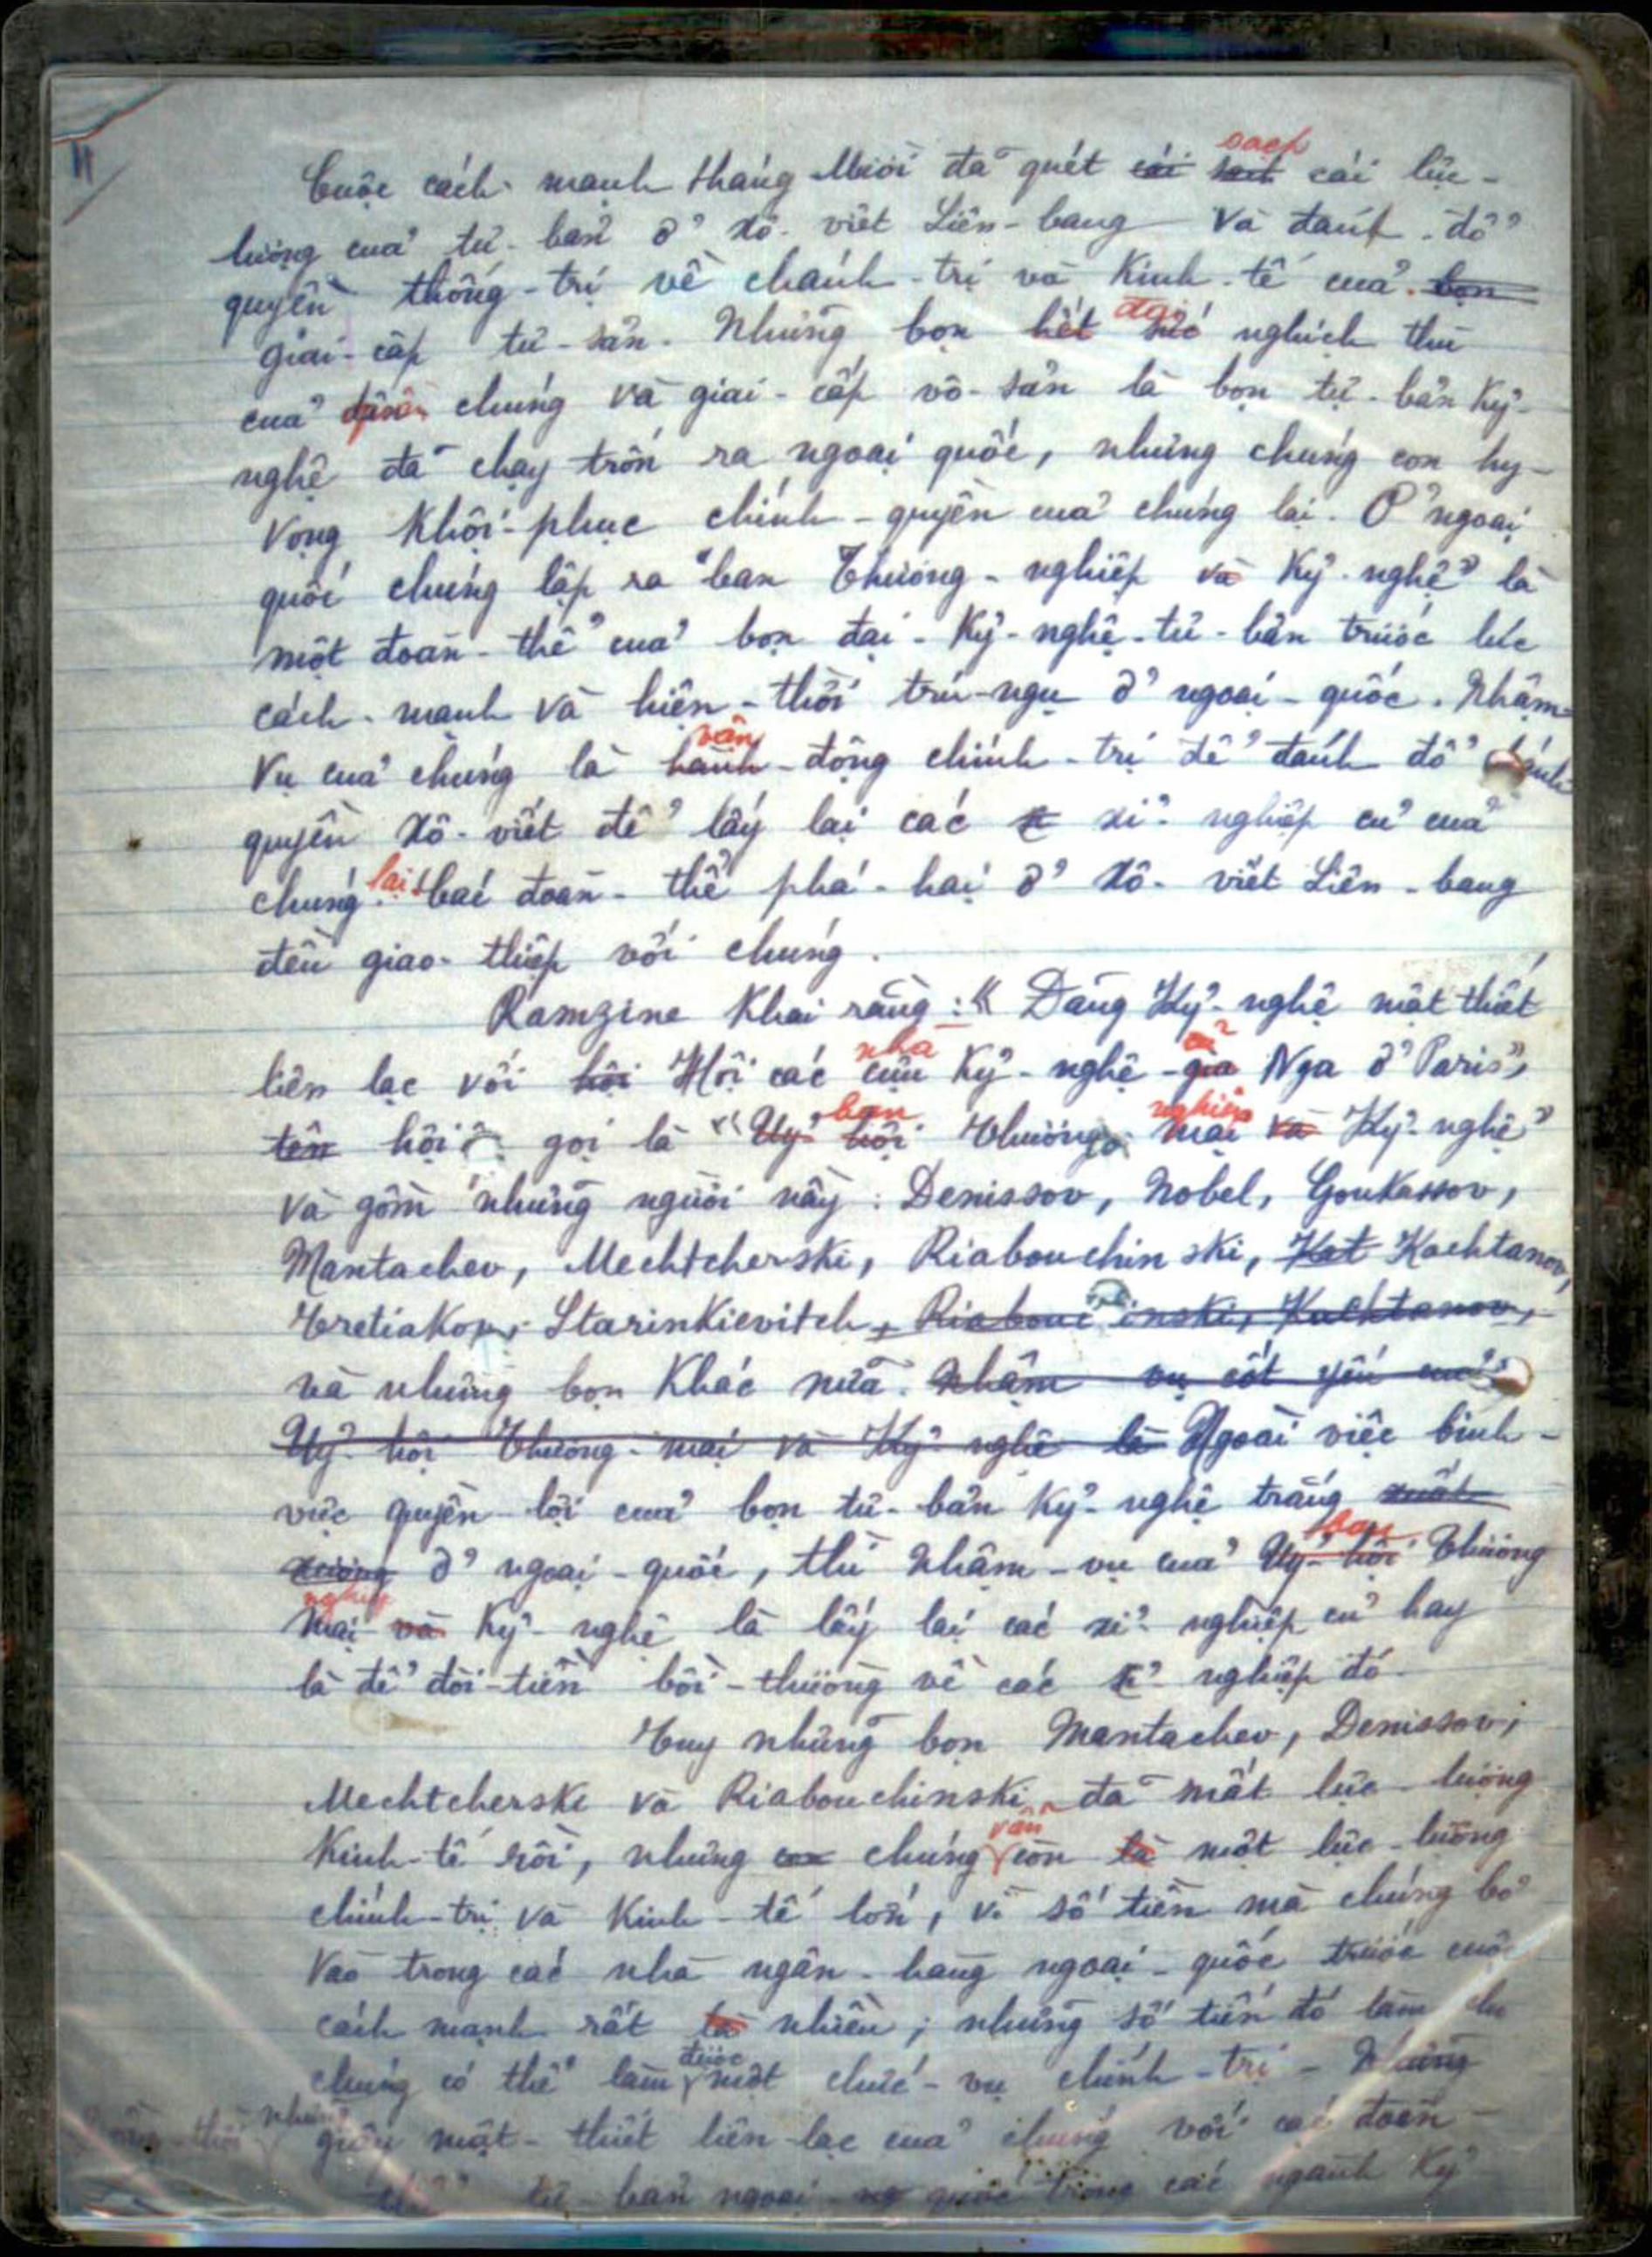 11
Cuộc cách-mạnh tháng Mười đã quét cái sạch cái lực-
lượng của tư-bản ở Xô-viết Liên-bang và đánh-đổ
quyền thống-trị về chánh-trị và kinh-tế của bọn
giai-cấp tư-sản. Nhưng bọn hết sức đại nghịch thù
của dân chúng và giai-cấp vô-sản là bọn tư-bản kỹ-
nghệ đã chạy trốn ra ngoại quốc, nhưng chúng còn hy-
vọng khôi-phục chính-quyền của chúng lại. Ở ngoại
quốc chúng lập ra "ban Thương-nghiệp và Kỹ-nghệ" là
một đoàn-thể của bọn đại-kỹ-nghệ-tư-bản trước lúc
cách-mạnh và hiện-thời trú-ngụ ở ngoại-quốc. Nhậm-
vụ của chúng là hành vận-động chính-trị để đánh đổ chánh
quyền Xô-viết để lấy lại các x xí-nghiệp cũ của
chúng lại. Các đoàn-thể phá-hại ở Xô-viết Liên-bang
đều giao-thiệp với chúng.
Ramzine khai rằng: « Đảng Kỹ-nghệ mật thiết
liên lạc với hội Hội các cựu nhà kỹ-nghệ-gia cũ Nga ở Paris,
tên hội gọi là "Uỷ hội ban Thương mại nghiệp và Kỹ-nghệ"
và gồm những người nầy: Denissov, Nobel, Goukassov,
Mantachev, Mechtcherski, Riabouchinski, Kat Kachtanov,
Tretiakov, Starinkievitch, Riabouchinski, Kachtanov,
và những bọn khác nữa. Nhậm vụ cốt yếu của
Uỷ-hội Thương-mại và Kỹ-nghệ là Ngoài việc binh-
vực quyền lợi của bọn tư-bản kỹ-nghệ trắng xuất
xưởng ở ngoại-quốc, thì nhậm-vụ của Uỷ-hội ban Thương
mại nghiệp và Kỹ-nghệ là lấy lại các xí-nghiệp cũ hay
là để đòi-tiền bồi-thường về các xí-nghiệp đó.
Tuy những bọn Mantachev, Denissov,
Mechtcherski và Riabouchinski đã mất lực-lượng
kinh-tế rồi, nhưng con chúng vẫn còn là một lực-lượng
chính-trị và kinh-tế lớn, vì số tiền mà chúng bỏ
vào trong các nhà ngân-hàng ngoại-quốc trước cuộc
cách mạnh rất là nhiều; những số tiền đó làm cho
chúng có thể làm được một chức-vụ chính-trị
những giây mật-thiết liên-lạc của chúng với các đoàn-
thể tư-bản ngoại-ng quốc trong các ngành kỹ-